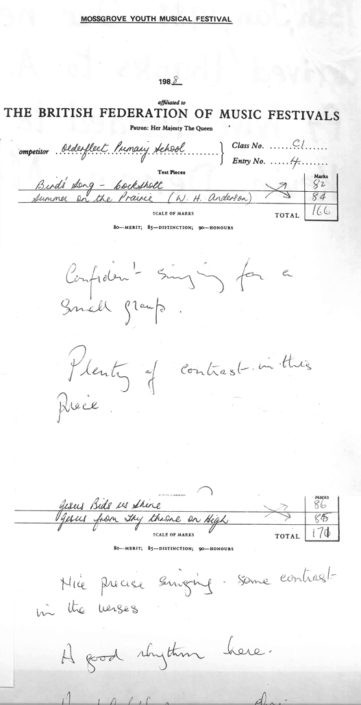 MOSSGROVE YOUTH MUSICAL FESTIVAL
1988
affiliated to
THE BRITISH FEDERATION OF MUSIC FESTIVALS
Patron: Her Majesty The Queen
ompetitor Olderfleet Primary School
Class No. C1
Entry No. 4
Test Pieces Marks
Bird's Song - Cockshott 82
Summer on the Prairie (W. H. Anderson) 84
SCALE OF MARKS TOTAL 166
80—MERIT; 85—DISTINCTION; 90—HONOURS
Confident singing for a
small group.
Plenty of contrast in this
piece.
MARKS
Jesus Bids us Shine 86
Jesus from thy throne on High 85
SCALE OF MARKS TOTAL 171
80—MERIT; 85—DISTINCTION; 90—HONOURS
Nice precise singing. some contrast
in the verses
A good rhythm here.